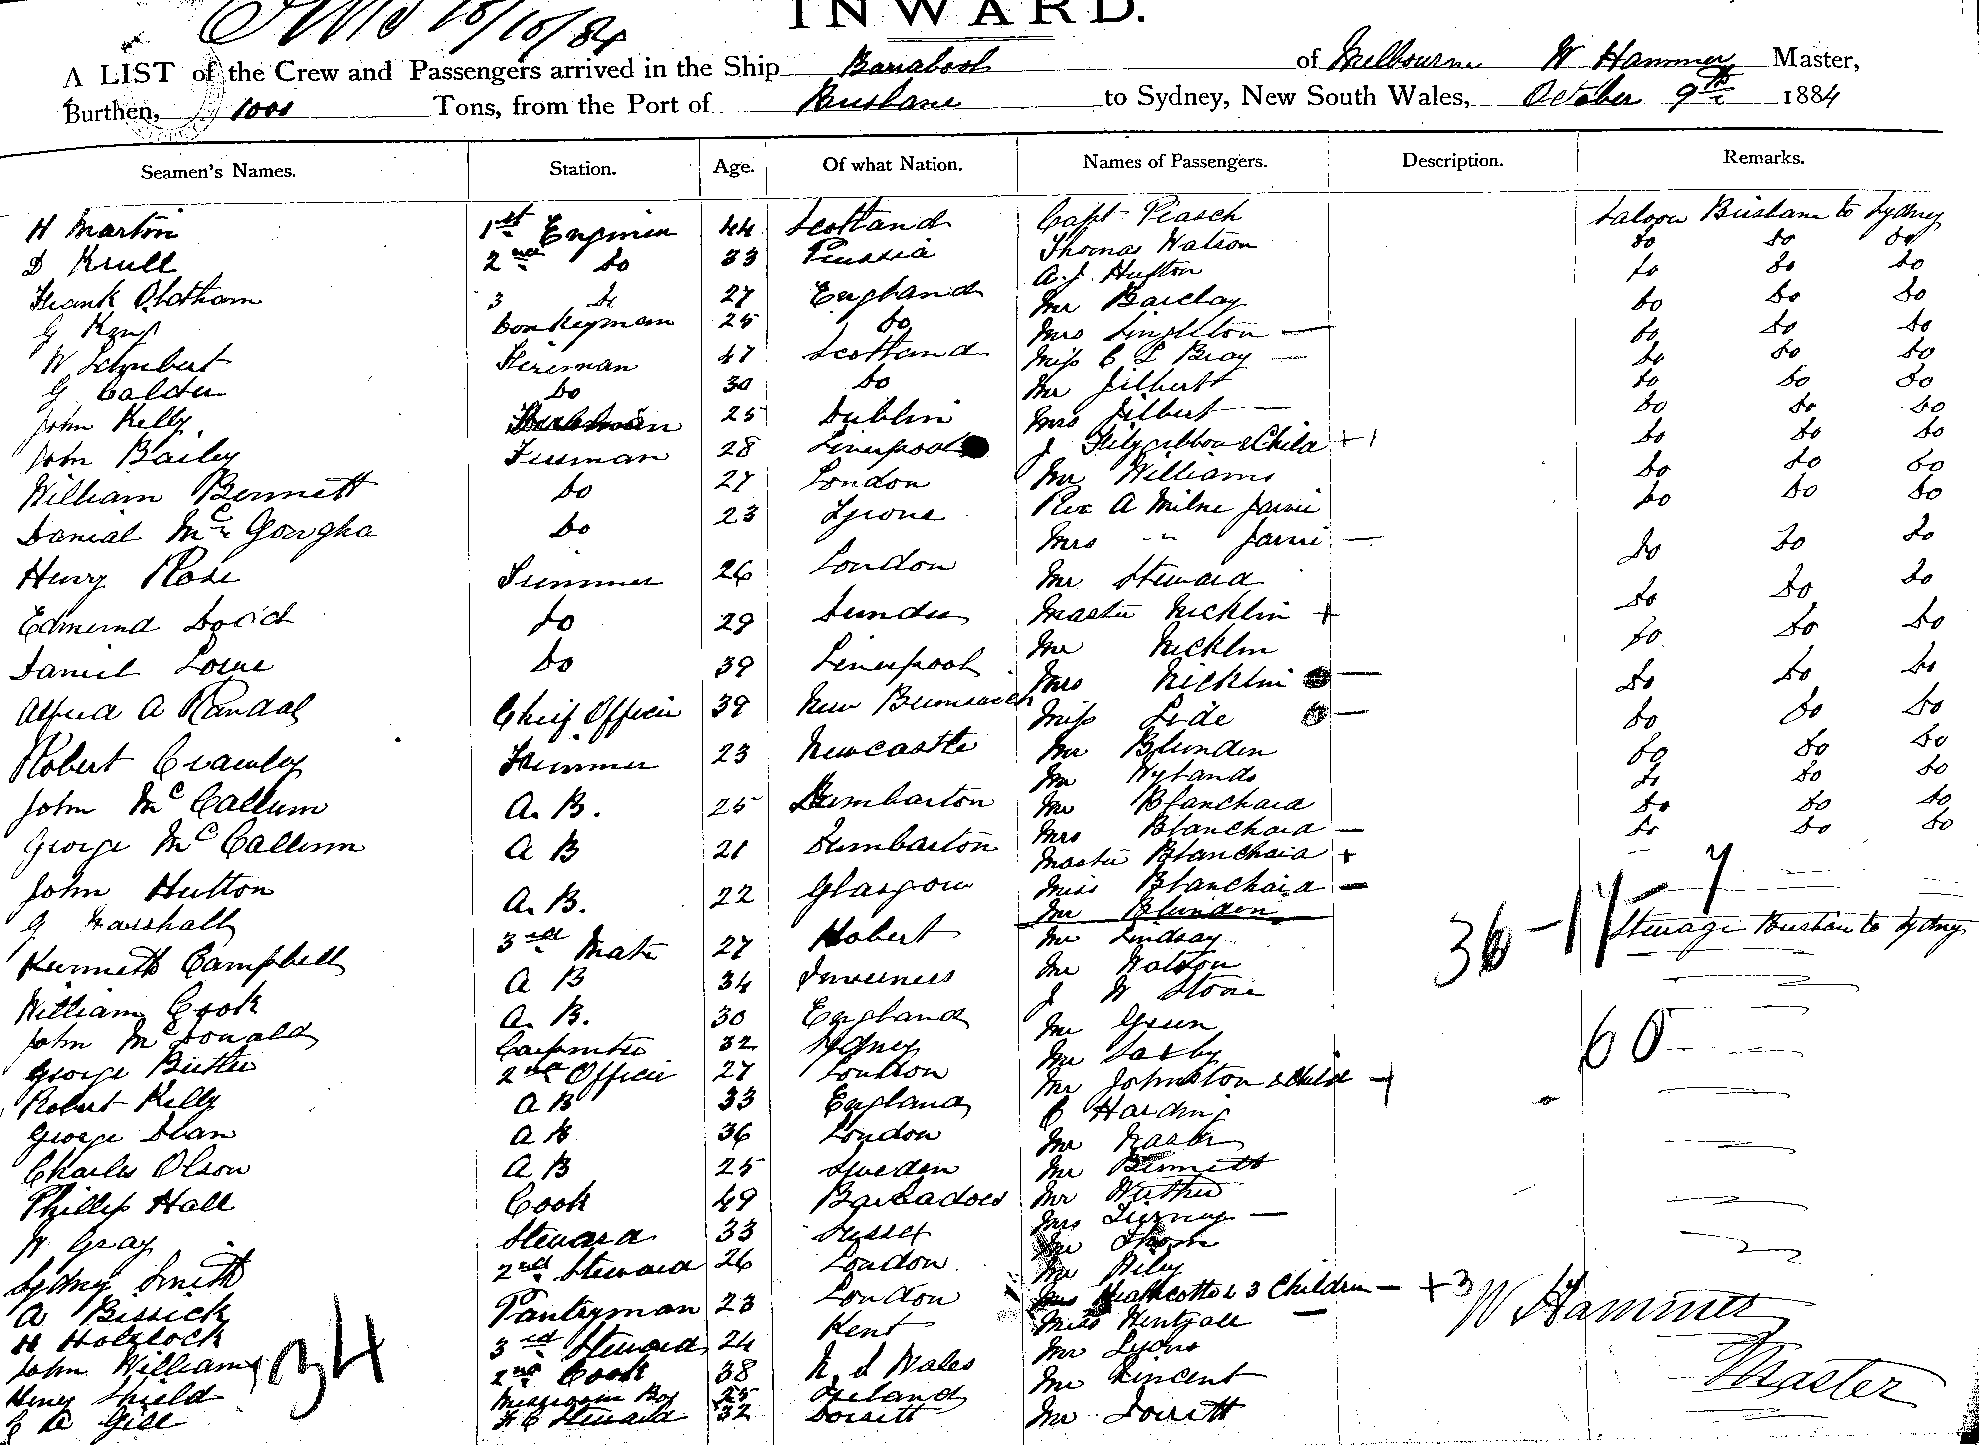 INWARD.
10/10/84
A LIST of the Crew and Passengers arrived in the Ship Barrabool of Melbourne W Hammer Master,
Burthen, 1000 Tons, from the Port of Brisbane to Sydney, New South Wales, October 9th 1884
Seamen's Names. Station. Age. Of what Nation. Names of Passengers. Description. Remarks.
H Martin 1st Engineer 44 Scotland Capt Piasch Saloon Brisbane to Sydney
D Krull 2nd do 33 Prussia Thomas Watson do do do
Frank Oldham 3 do 27 England A. J. Hufton do do do
G Kemp Donkeyman 25 do Mr Barclay do do do
W Schubert Fireman 47 Scotland Mrs Singleton — do do do
G Calder do 30 do Miss C L Bray — do do do
John Kelly 25 Dublin Mr Jilbert do do do
John Bailey Fireman 28 Liverpool Mrs Jilbert — do do do
William Bennett do 27 London J Fitzgibbon & Child + 1 do do do
Danial Mc do 23 Tyrone Mr Williams do do do
Henry Rose Trimmer 26 London Rev A Milne Jarvie do do do
Edmund do 29 Dundee Mrs " Jarvie — do do do
Daniel do 39 Liverpool Mr Steward do do do
Alfred A Randal Chief Officer 39 New Brunswick Master Nicklin + do do do
Robert Crawley Trimmer 23 Newcastle Mr Nicklin do do do
John McCallum A. B. 25 Dumbarton Mrs Nicklin — do do do
George McCallum A B 21 Dumbarton Miss — do do do
John Hutton A. B. 22 Glasgow Mr Blunden do do do
G Marshall 3rd Mate 27 Hobert Mr Wylands do do do
Kenneth Campbell A B 34 Inverness Mr Blanchard do do do
William Cook A. B. 30 England Mrs Blanchard — do do do
John McDonald Carpenter 32 Sydney Master Blanchard +
George Butler 2nd Officer 27 London Miss Blanchard —
Robert Kelly A B 33 England Mr Blunden
George Dean A B 36 London Mr Lindsay 36 - 17 - 7 Steerage Brisbane to Sydney
Charles Olson A B 25 Sweden Mr Watson
Phillip Hall Cook 49 Barbadoes J W Stone
W Gray Steward 33 Sussex Mr Green 60
Sydney Smith 2nd Steward 26 London Mr Saxby
A Bissick Pantryman 23 London Mr Johnston & Child +
H Holylock 3rd Steward 24 Kent C Harding
John Williams 2nd Cook 38 N. S Wales Mr
Henry Shield Messroom Boy 25 Ireland Mr Bennett
Gill Steward 32 Dorsett Mr
34
Mrs Tierney —
Mr Thom
Mr Riley
Mrs Heathcotte & 3 Children — + 3
Miss —
Mr Lyons
Mr Vincent
Mr Dorsett
W Hammer
Master